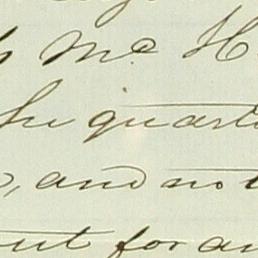 Mc H
the quart
and not
out for an